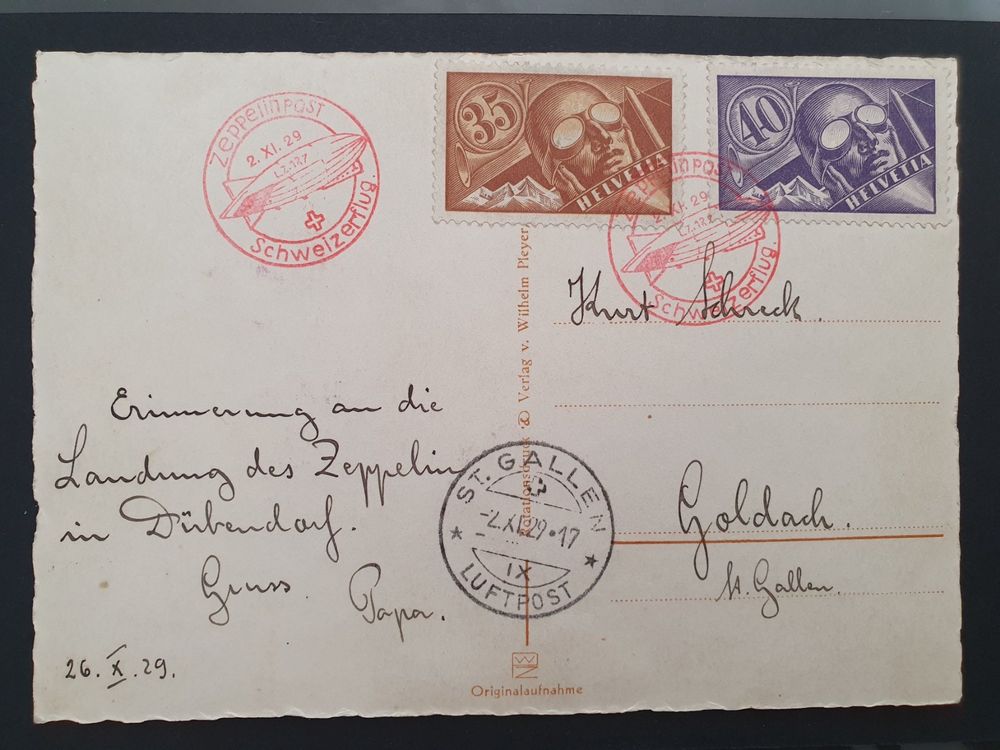 Zeppelinpost
2. XI. 29
L.Z. 127
Schweizerflug.
35
HELVETIA
40
HELVETIA
Zeppelinpost
2. XI. 29
L.Z. 127
Schweizerflug.
Kurt Schreck.
Erinnerung an die
Landung des Zeppelin
in Dübendorf.
Gruss
Papa.
26. X. 29.
Rotationsdruck & Verlag v. Wilhelm Pleyer,
ST. GALLEN
-2.XI.29•17
IX
LUFTPOST
Goldach.
St. Gallen.
Originalaufnahme